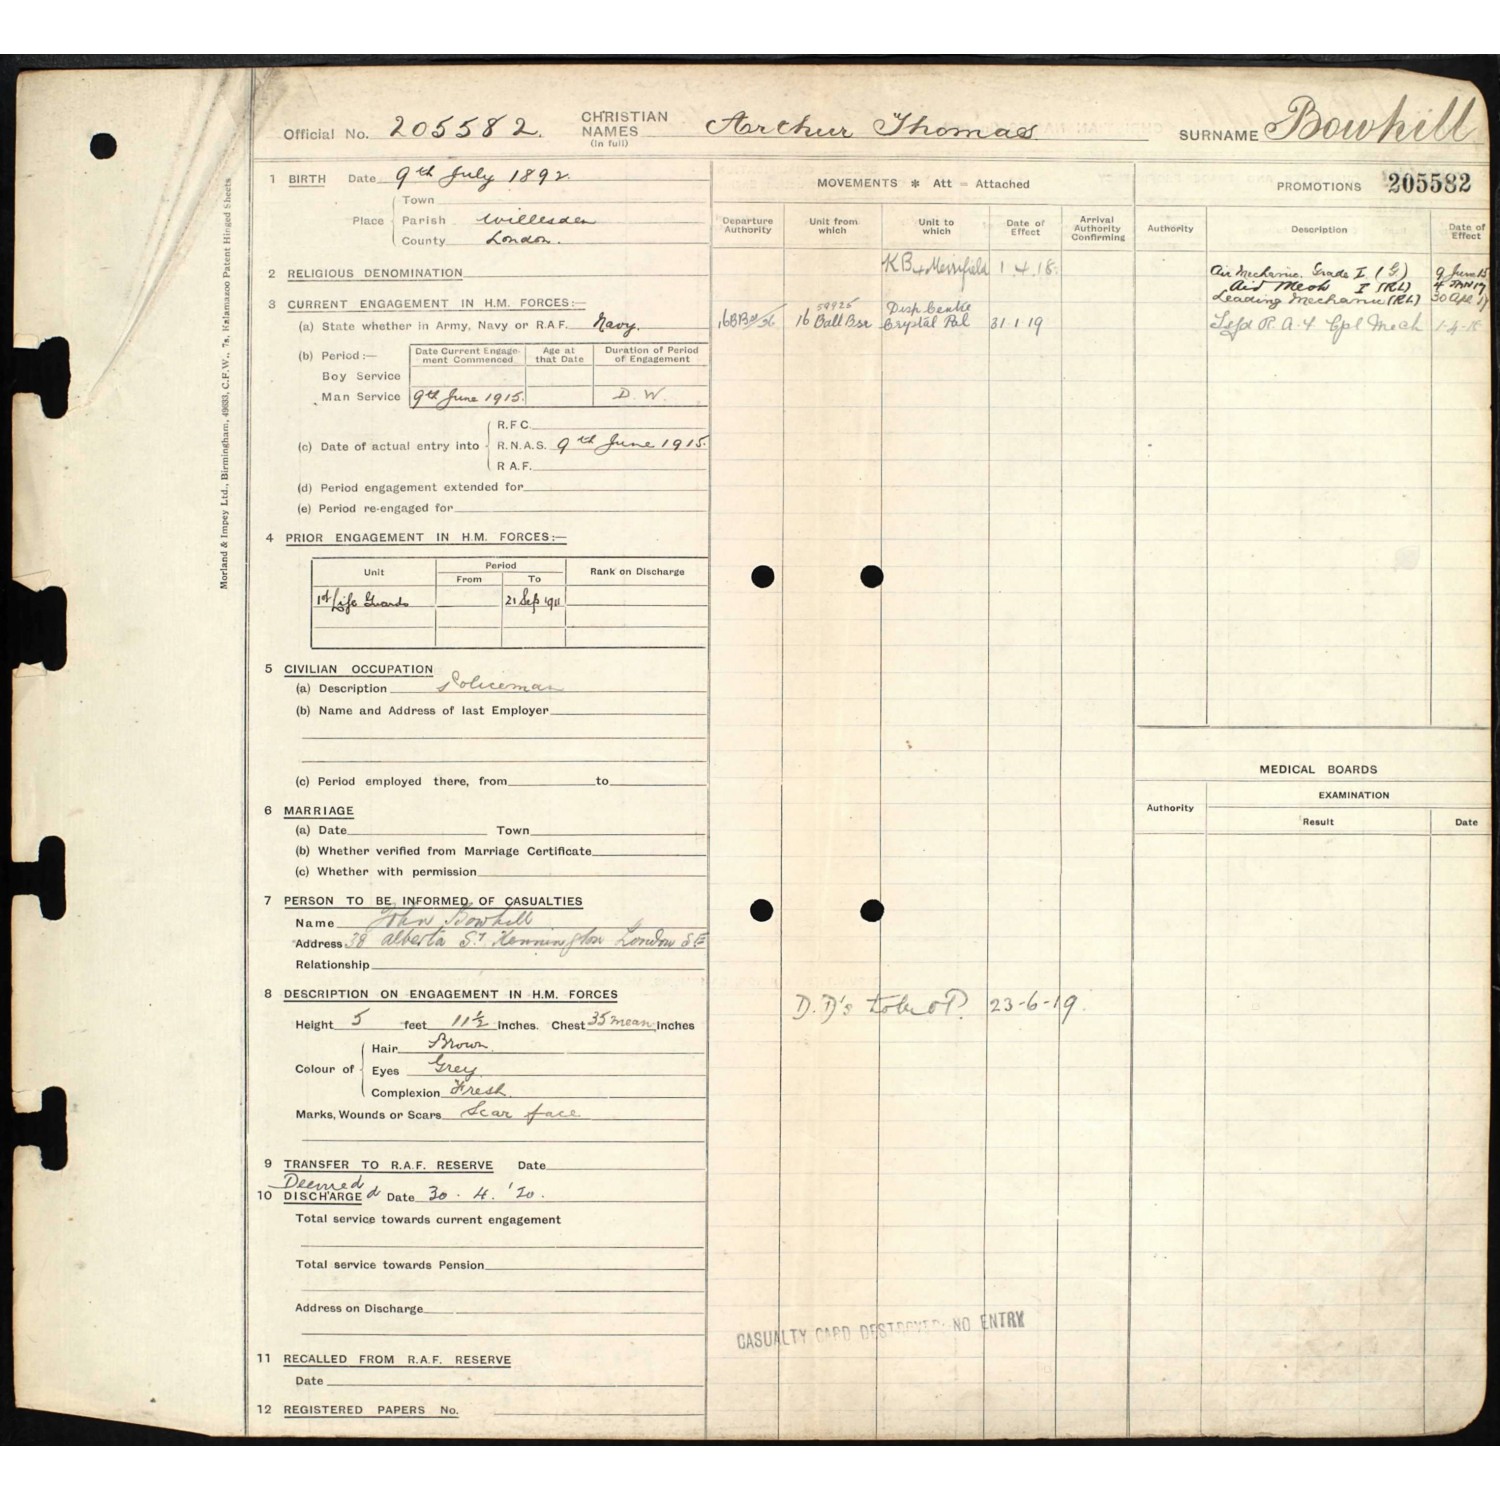 Official No. 205582. CHRISTIAN NAMES (in full) Arthur Thomas SURNAME Bowhill
1 BIRTH Date 9th July 1892.
Town
Place Parish Willesden
County London.
2 RELIGIOUS DENOMINATION
3 CURRENT ENGAGEMENT IN H.M. FORCES:—
(a) State whether in Army, Navy or R.A.F. Navy.
(b) Period:—
Date Current Engagement Commenced Age at that Date Duration of Period of Engagement
Boy Service
Man Service 9th June 1915. D. W.
R.F.C.
(c) Date of actual entry into R.N.A.S. 9th June 1915.
R A.F.
(d) Period engagement extended for
(e) Period re-engaged for
4 PRIOR ENGAGEMENT IN H.M. FORCES:—
Unit Period Rank on Discharge
From To
1st Life Guards 21 Sep 1911
5 CIVILIAN OCCUPATION
(a) Description Policeman
(b) Name and Address of last Employer
(c) Period employed there, from to
6 MARRIAGE
(a) Date Town
(b) Whether verified from Marriage Certificate
(c) Whether with permission
7 PERSON TO BE INFORMED OF CASUALTIES
Name John Bowhill
Address 38 Alberta St Kennington London S E
Relationship
8 DESCRIPTION ON ENGAGEMENT IN H.M. FORCES
Height 5 feet 11½ Inches. Chest 35 mean Inches
Hair Brown.
Colour of Eyes Grey.
Complexion Fresh.
Marks, Wounds or Scars Scar face
9 TRANSFER TO R.A.F. RESERVE Date
Deemed
10 DISCHARGE d Date 30. 4. '20.
Total service towards current engagement
Total service towards Pension
Address on Discharge
11 RECALLED FROM R.A.F. RESERVE
Date
12 REGISTERED PAPERS No.
MOVEMENTS * Att = Attached
Departure Authority Unit from which Unit to which Date of Effect Arrival Authority Confirming
KB + Merrifield 1.4.18.
16 Ball Bse Disp Centre Crystal Pal 31.1.19
D.D's 23-6-19.
CASUALTY CARD DESTROYED: NO ENTRY
PROMOTIONS 205582
Authority Description Date of Effect
Air Mechanic. Grade I. (G) 9 June 15
Air Mech I (RL) 4 JAN 17
Leading Mechanic (RL) 30 Apl 17
R.A.F. Cpl Mech 1-4-18
MEDICAL BOARDS
Authority EXAMINATION
Result Date
Morland & Impey Ltd., Birmingham, 49633, C.F.W., 7s, Kalamazoo Patent Hinged Sheets